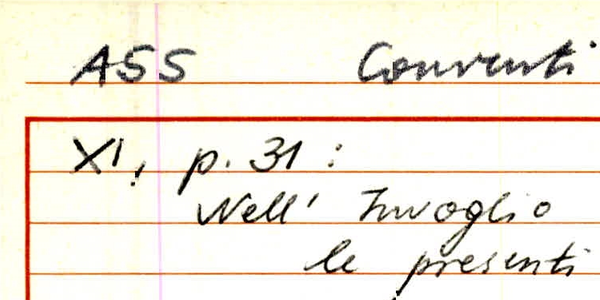 ASS Conventi
XI, p. 31:
Nell' Invoglio
le presenti